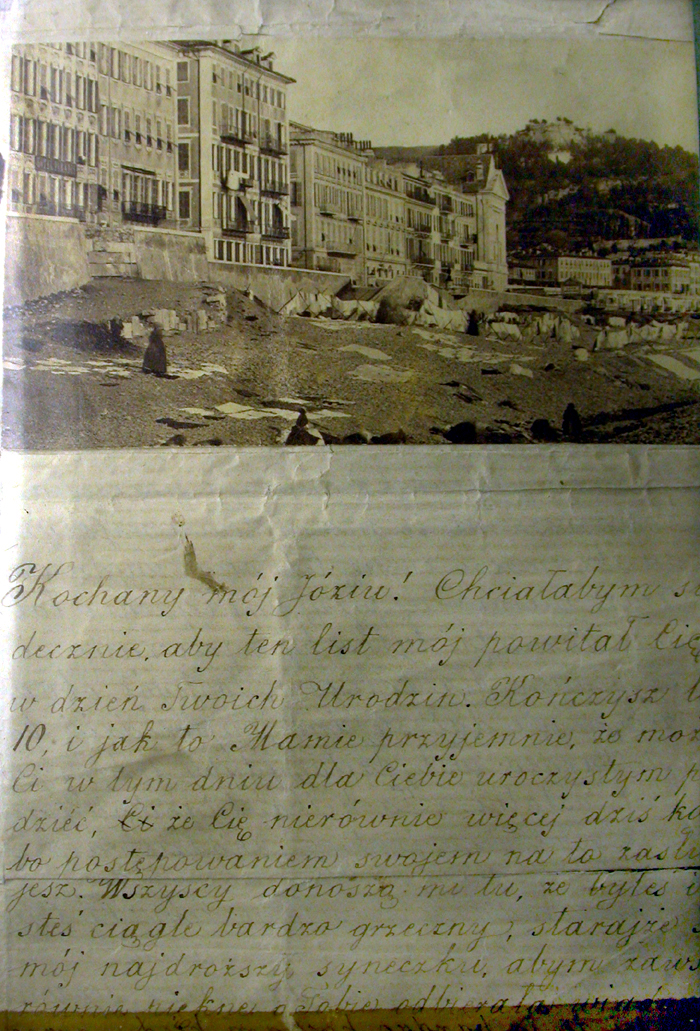 Kochany mój Józiu! Chciałabym
decznie, aby ten list mój powitał Cię
w dzień Twoich Urodzin. Kończysz
10, i jak to Mamie przyjemnie, że moż
Ci w tym dniu dla Ciebie uroczystym
dzieć, że Cię nierównie więcej dziś ko
bo postępowaniem swojem na to zasłu
jesz. Wszyscy donoszą mi tu, że byłeś i
steś ciągle bardzo grzeczny, starajże
mój najdroższy syneczku, abym zaws
równie piękne o Tobie odbierała